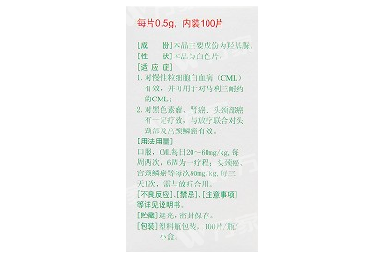 每片0.5g, 内装100片
[成 份]本品主要成份为羟基脲。
[性 状]本品为白色片。
[适 应 症]
1. 对慢性粒细胞白血病(CML)
有效,并可用于对马利兰耐药
的CML;
2. 对黑色素瘤、肾癌、头颈部癌
有一定疗效,与放疗联合对头
颈部及宫颈鳞癌有效。
[用法用量]
口服,CML每日20~60mg/kg,每
周两次,6周为一疗程;头颈癌、
宫颈鳞癌等每次80mg/kg,每三
天1次,需与放疗合用。
[不良反应]、[禁忌]、[注意事项]
等详见说明书。
[贮藏]遮光,密封保存。
[包装]塑料瓶包装,100片/瓶/
小盒。